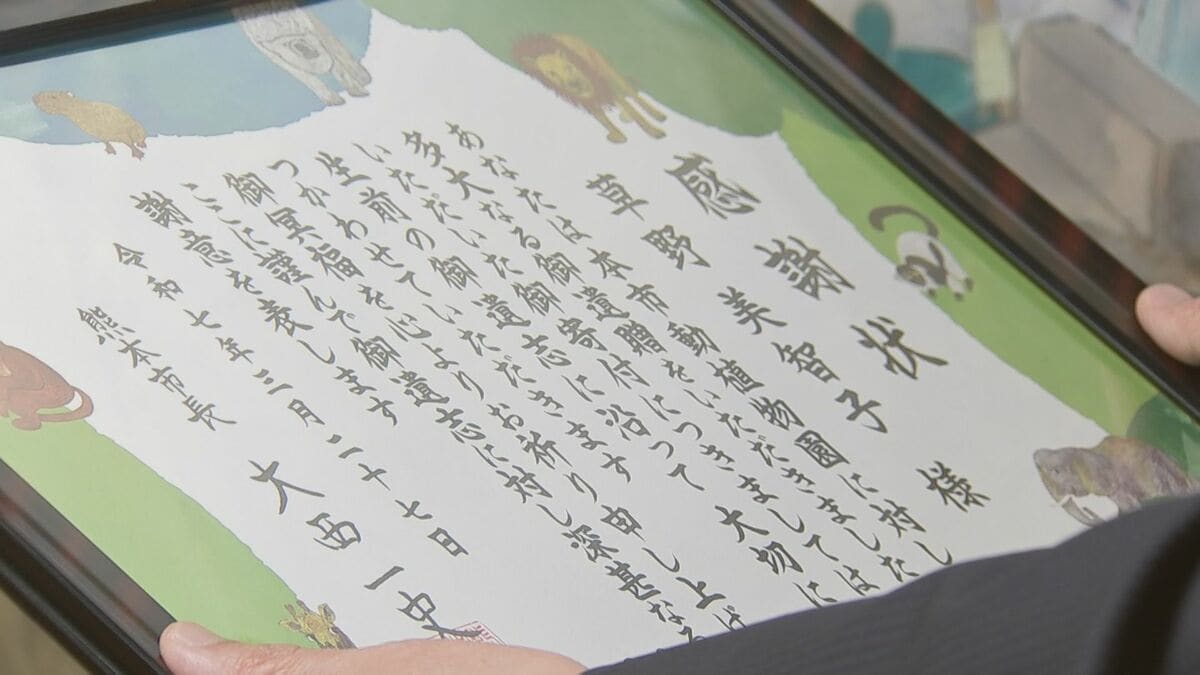 感謝状
草野 美智子 様
あなたは本市動植物園に対し
多大なる御遺贈をいただきました
いただいた御寄付につきましては
御遺志に沿って 大切に
つかわせていただきます
生前の御遺志に対し深甚なる
御冥福を心よりお祈り申し上げ
ここに謹んで御
謝意を表します
令和七年三月二十七日
熊本市長 大西一史